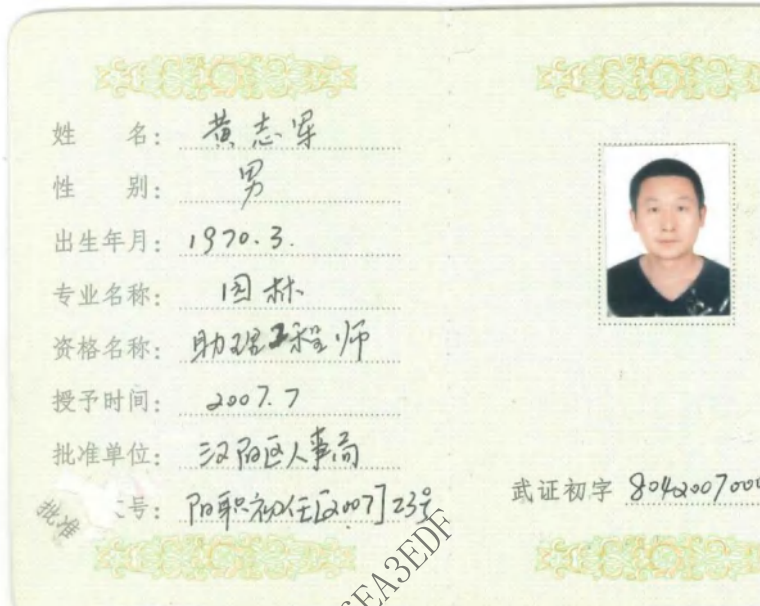 姓 名: 黄志军
性 别: 男
出生年月: 1970.3.
专业名称: 园林
资格名称: 助理工程师
授予时间: 2007.7
批准单位: 汉阳区人事局
批准 号: 阳职初任[2007]23号
武证初字 8042007000
EA3EDF